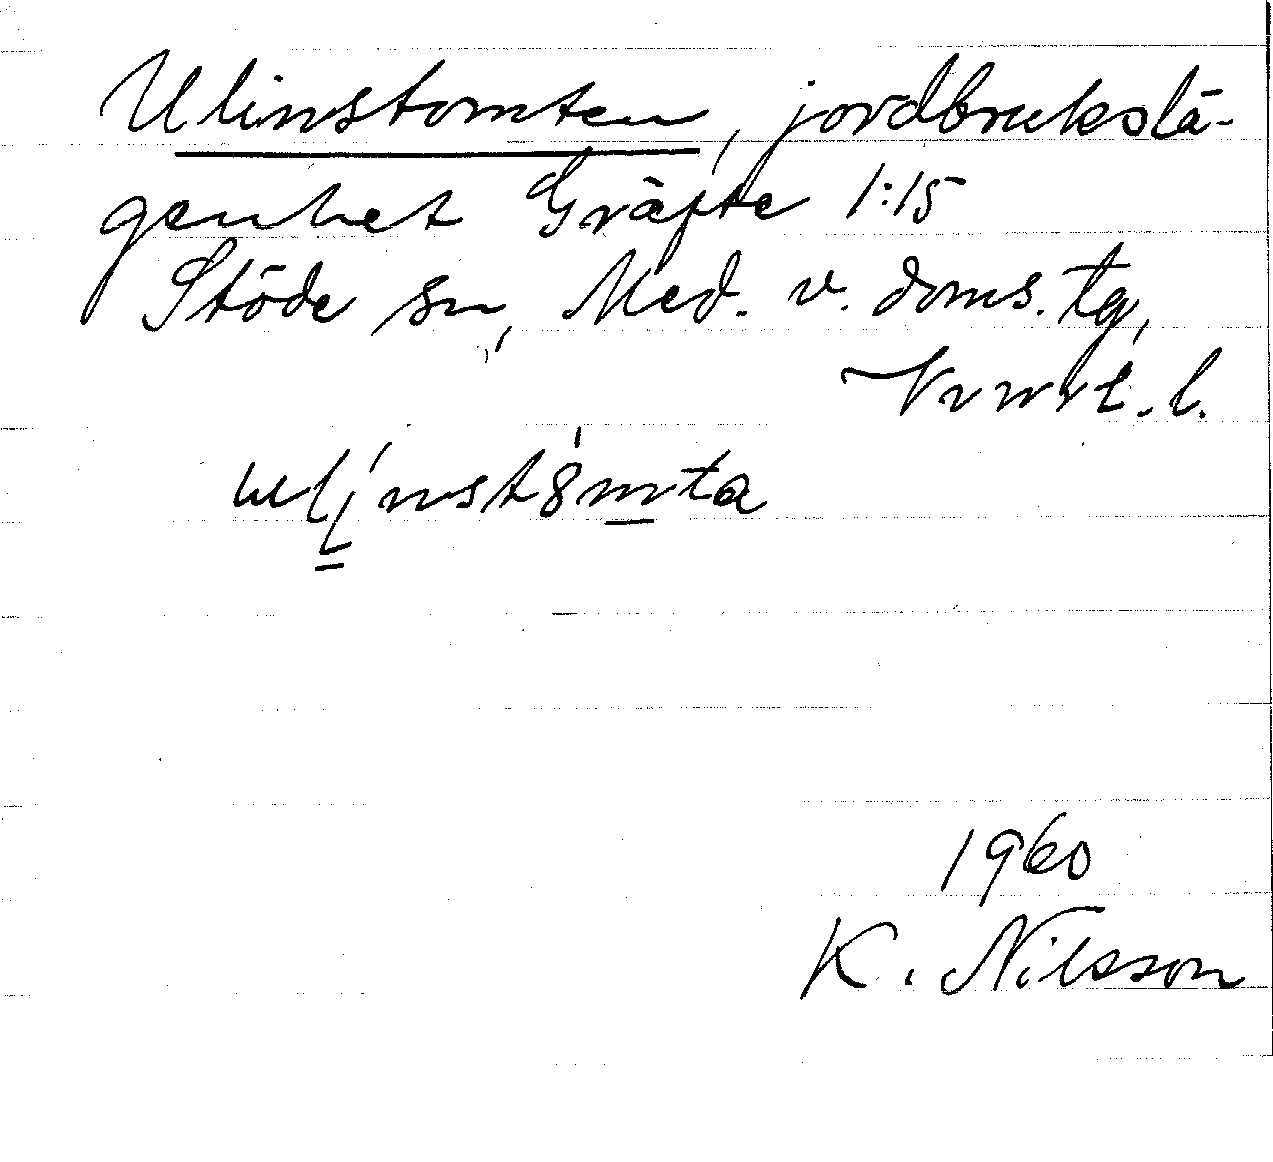 Ulinstomten, jordbrukslä-
genhet Gräfte 1:15
Stöde sn, Med. v. doms. tg,
1960
K. Nilsson